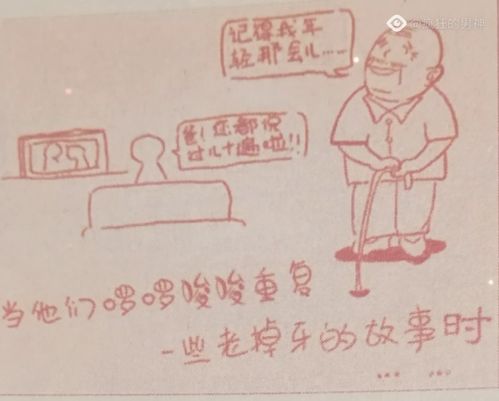 @疯狂的男神
记得我年
轻那会儿……
爸！还都说
过几十遍啦！！
当他们啰啰唆唆重复
一些老掉牙的故事时
……